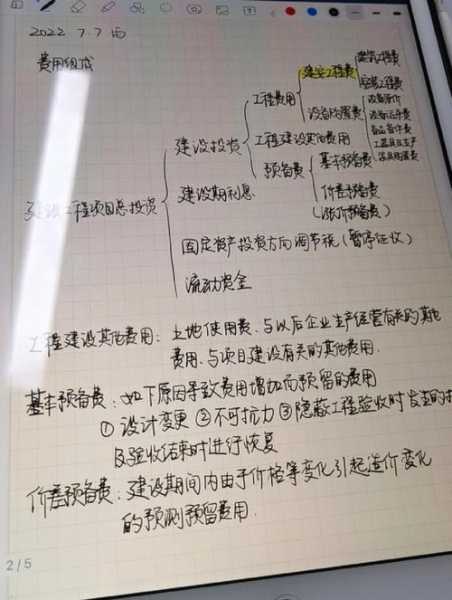 2022 7.7 雨
费用组成
建筑工程费
建安工程费
安装工程费
工程费用
设备原价
设备购置费
设备运杂费
备品备件费
建设投资
工程建设其他费用
工器具及生产
家具购置费
预备费
基本预备费
建设期利息
价差预备费
建设工程项目总投资
(涨价预备费)
固定资产投资方向调节税(暂停征收)
流动资金
工程建设其他费用：土地使用费、与以后企业生产经营有关的其他
费用、与项目建设有关的其他费用.
基本预备费：如下原因导致费用增加而预留的费用
①设计变更 ②不可抗力 ③隐蔽工程验收时发生的
及验收结束时进行恢复
价差预备费：建设期间内由于价格等变化引起造价变化
的预测预留费用.
2/5